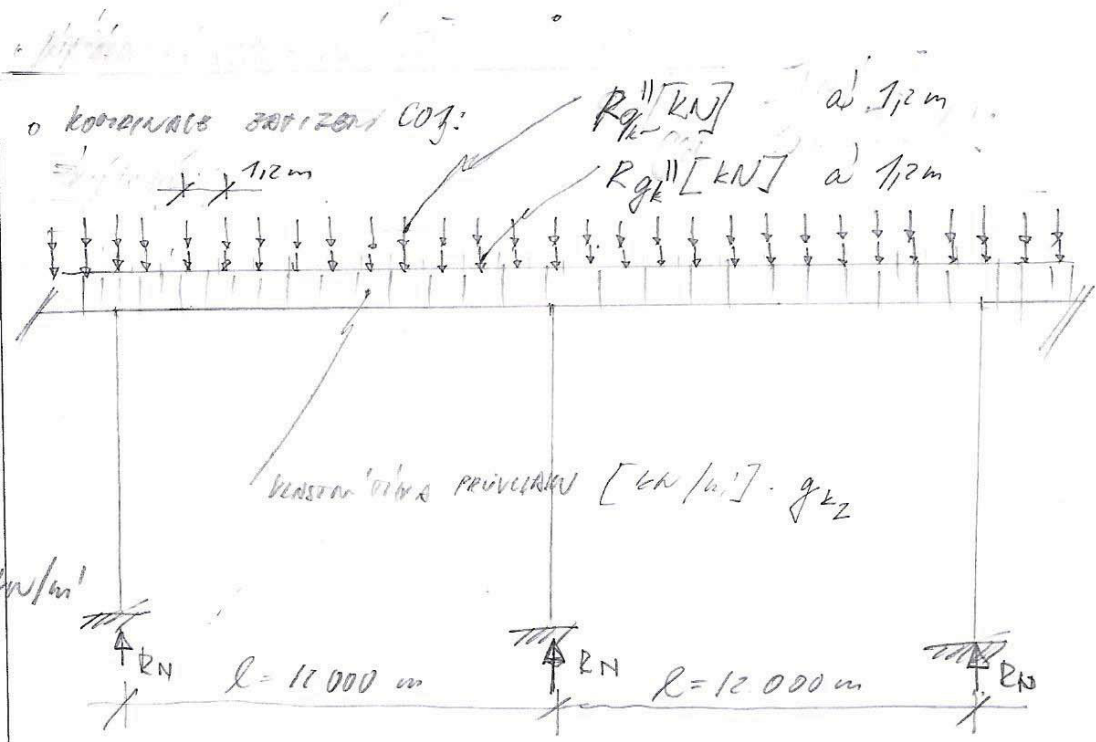 o KOMBINACE ZATÍŽENÍ CO3:
Rqk" [kN] á 1,2 m
Rgk" [kN] á 1,2 m
1,2 m
VLASTNÍ TÍHA PRŮVLAKU [kN/m'] gk2
kN/m'
RN
RN
RN
l = 12 000 m
l = 12.000 m